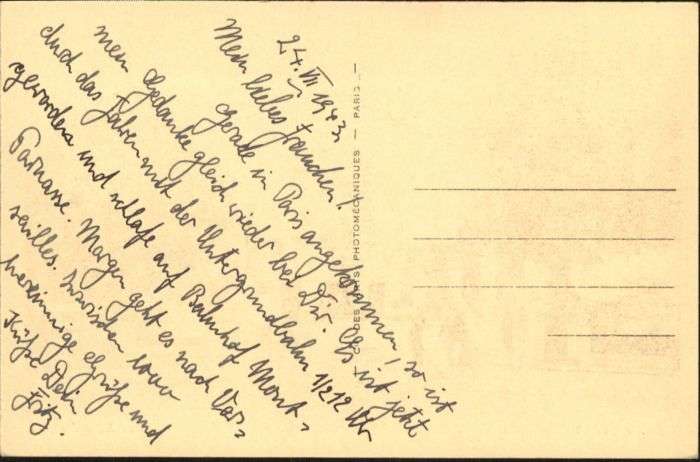 24. VII 1943.
Mein liebes Frauchen!
Gerade in Paris angekommen, so ist
mein Gedanke gleich wieder bei Dir. Es ist jetzt
durch das Fahren mit der Untergrundbahn 1/2 12 Uhr
geworden und schlafe auf Bahnhof Mont-
Parnasse. Morgen geht es nach Ver-
sailles. Inzwischen 1000
herzinnige Grüße und
Küße Dein
Fritz.
DES ARTS PHOTOMÉCANIQUES — PARIS —